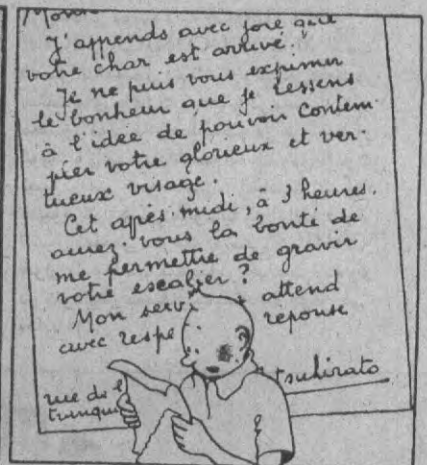 J'apprends avec joie que
votre char est arrivé.
Je ne puis vous exprimer
le bonheur que je ressens
à l'idée de pouvoir contem-
pler votre glorieux et ver-
tueux visage.
Cet après-midi, à 3 heures.
aurez-vous la bonté de
me permettre de gravir
votre escalier?
Mon serv attend
avec respe reponse
rue de l
tranqui tsuhirato